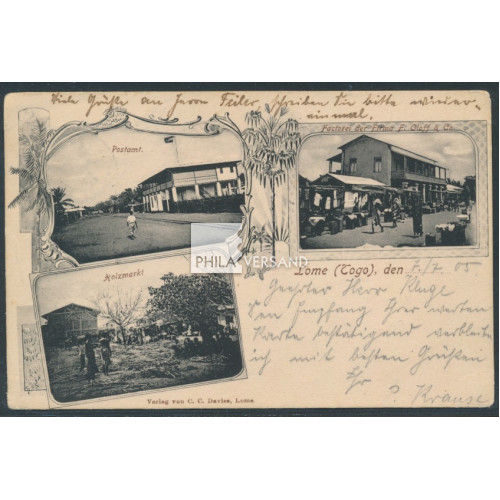 Viele Grüße an Herrn Feiler, schreiben Sie bitte wieder-
einmal.
Postamt.
Factorei der Firma F. Oloff & Co.
PHILA VERSAND
Lome (Togo), den 7./7. 05
Holzmarkt
Geehrter Herr Kluge
Den Empfang Ihrer werten
Karte bestätigend verbleibe
ich mit besten Grüßen
Ihr
Krause
Verlag von C. C. Davies, Lome